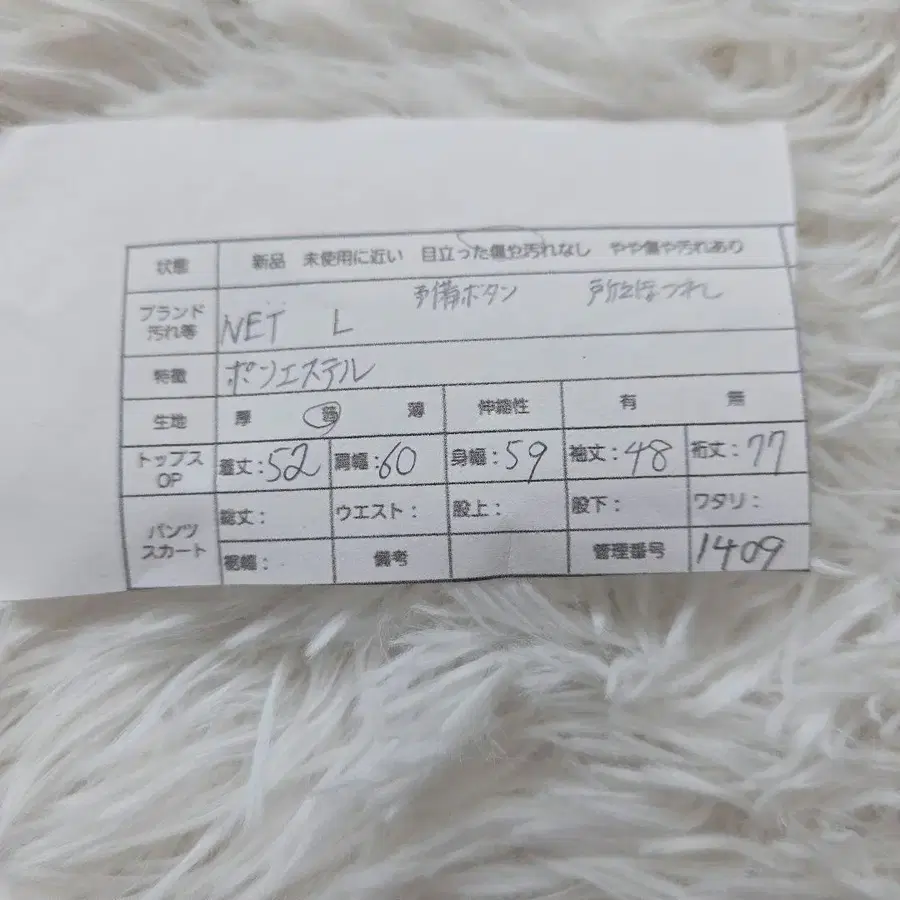 状態 新品 未使用に近い 目立った傷や汚れなし やや傷や汚れあり
ブランド 予備ボタン
汚れ等 NET L
特徴 ポリエステル
生地 厚 普 薄 伸縮性 有 無
トップス 着丈:52 肩幅:60 身幅:59 袖丈:48 裄丈:77
OP
パンツ 総丈: ウエスト: 股上: 股下: ワタリ:
スカート 裾幅: 備考 管理番号 1409